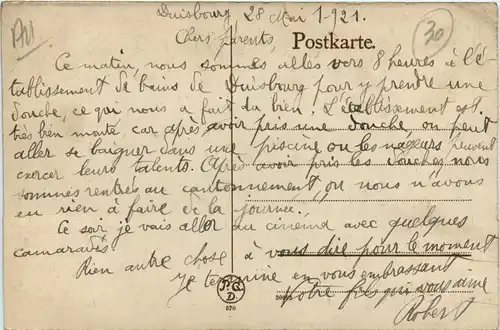 Duisbourg 28 Mai 1921.
30
Chers parents,
Postkarte.
Ce matin, nous sommes allés vers 8 heures à l'é-
tablissement de bains de Duisbourg pour y prendre une
douche, ce qui nous a fait du bien. L'établissement est
très bien monté car après avoir pris une douche, on peut
aller se baigner dans une piscine ou les nageurs peuvent
exercer leurs talents. Après avoir pris les douches, nous
sommes rentrés au cantonnement, ou nous n'avons
eu rien à faire de la journée.
Ce soir je vais aller au cinéma avec quelques
camarades
Rien autre chose à vous dire pour le moment
Je termine en vous embrassant
Votre fils qui vous aime
Robert
D
576